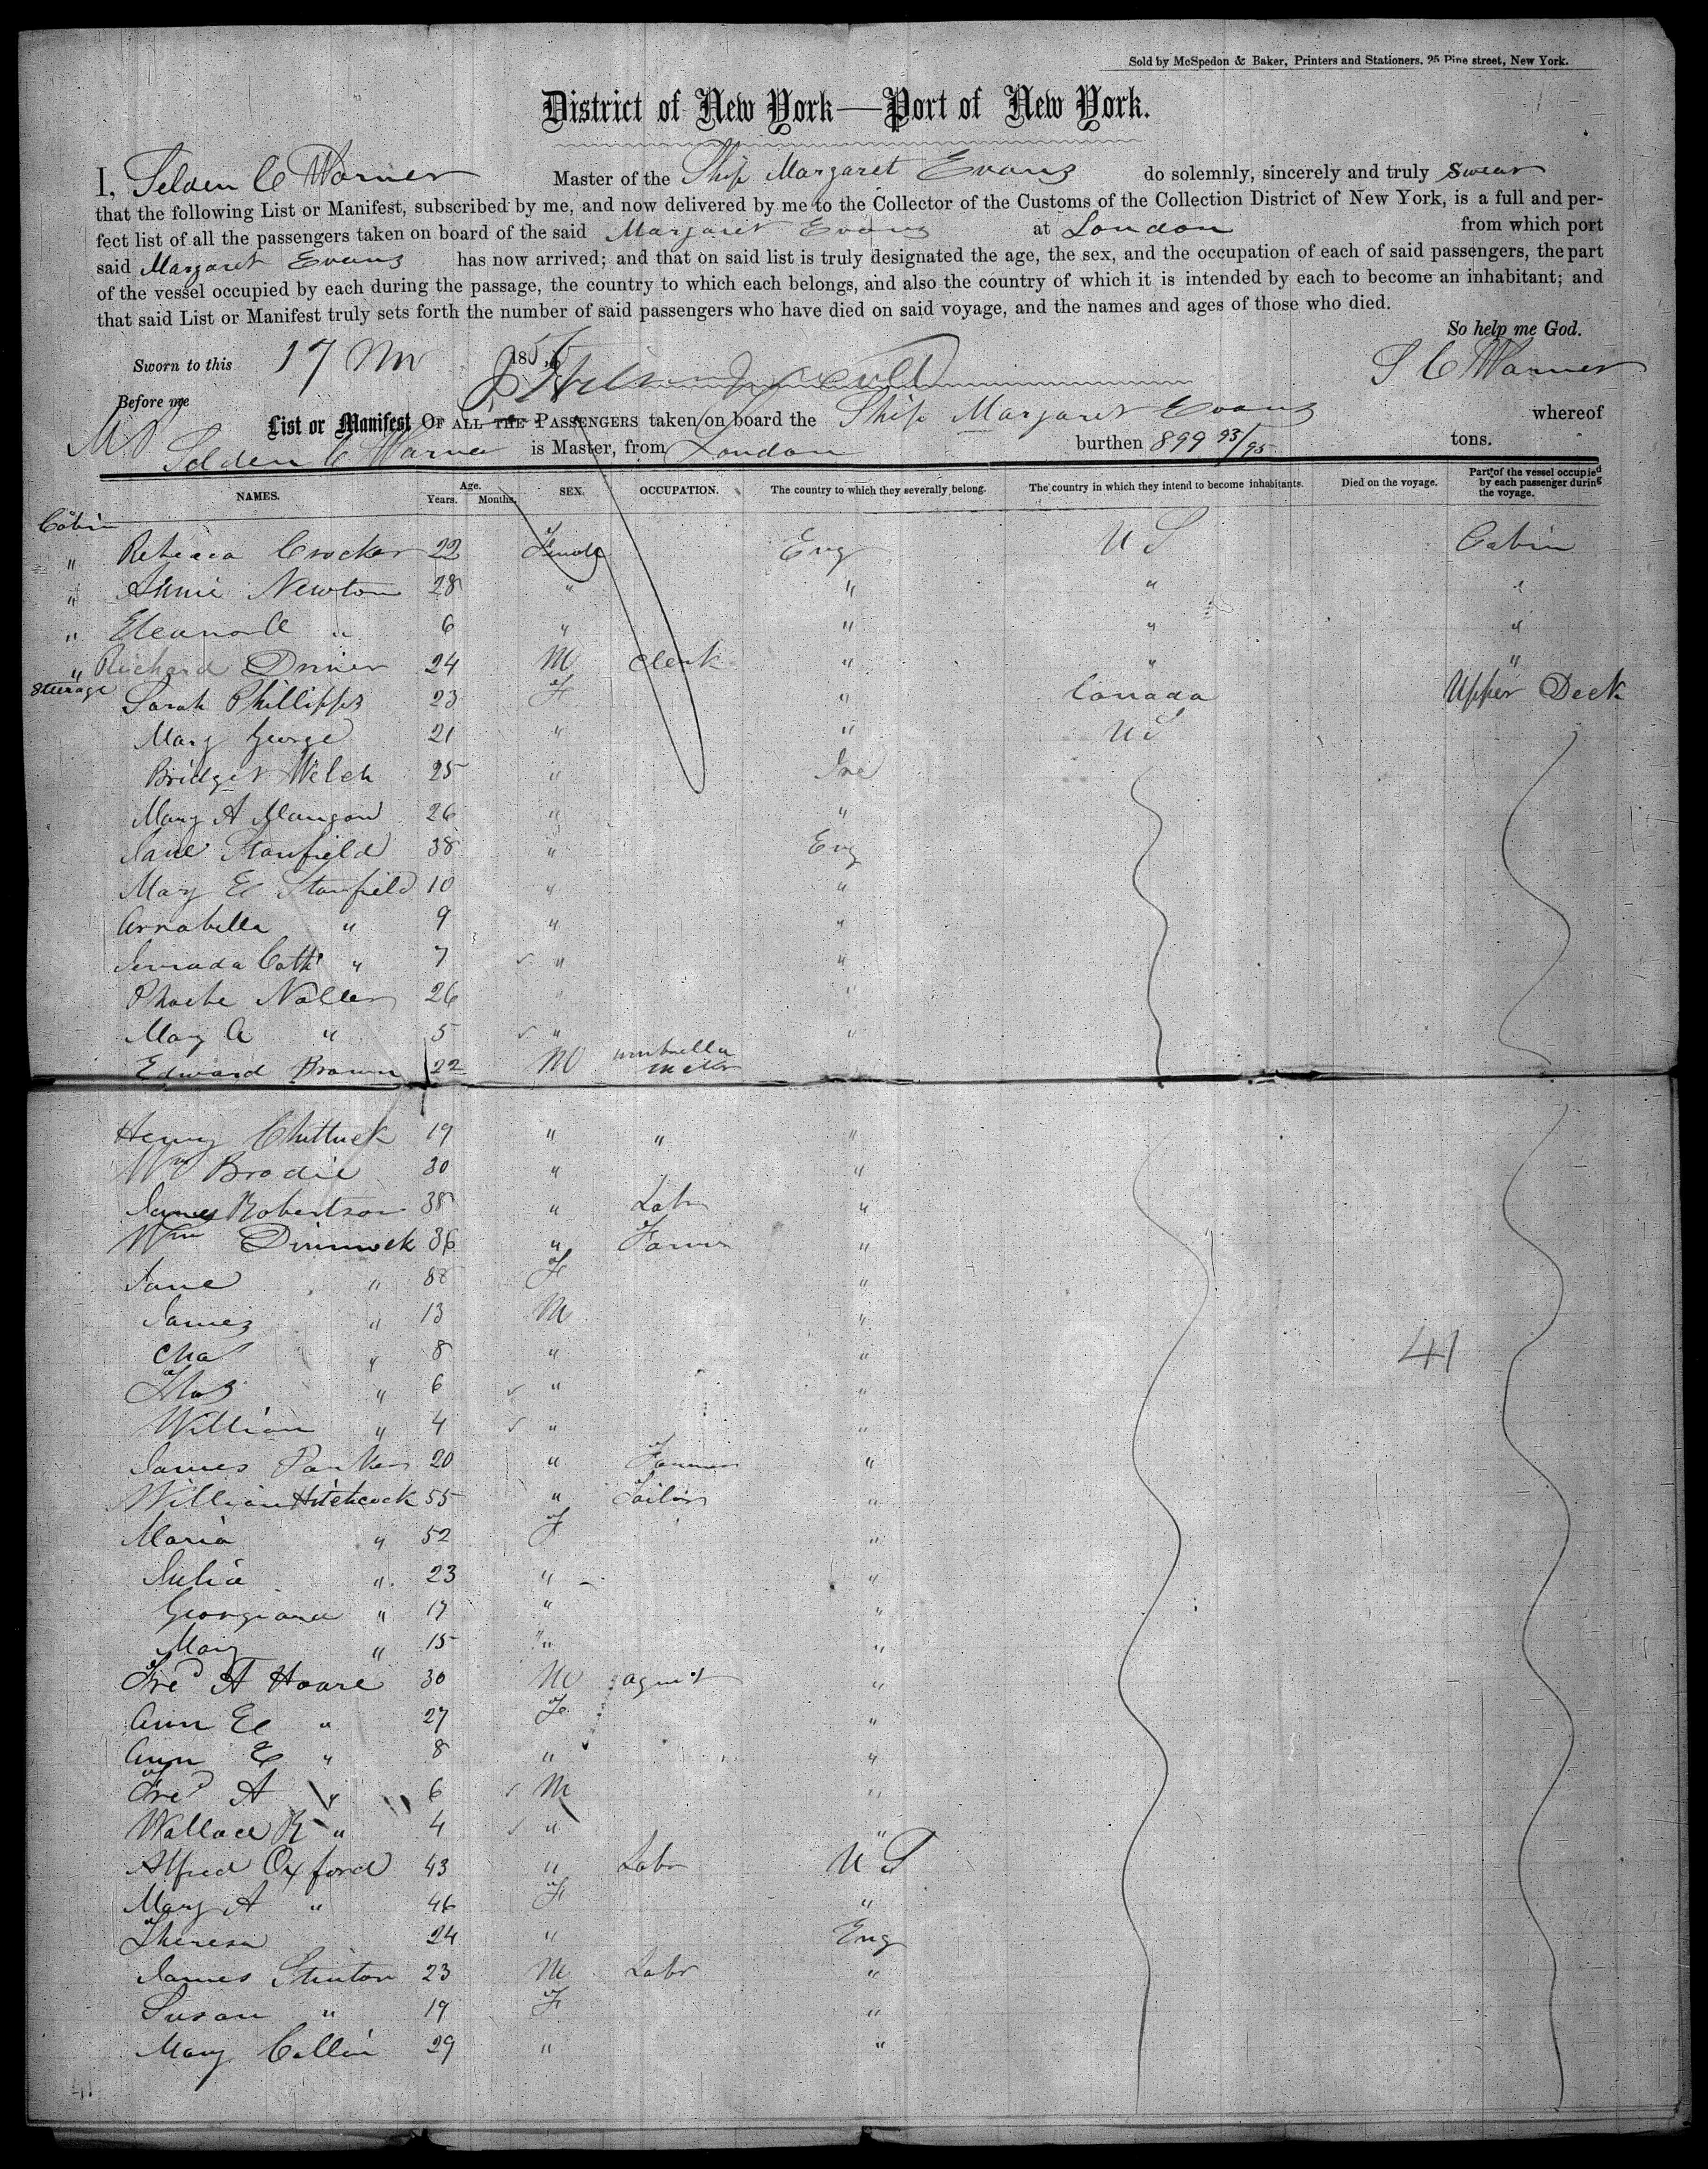 Sold by McSpedon & Baker, Printers and Stationers, 25 Pine street, New York.
District of New York—Port of New York.
I, Selden C Warner Master of the Ship Margaret Evans do solemnly, sincerely and truly swear
that the following List or Manifest, subscribed by me, and now delivered by me to the Collector of the Customs of the Collection District of New York, is a full and per-
fect list of all the passengers taken on board of the said Margaret Evans at London from which port
said Margaret Evans has now arrived; and that on said list is truly designated the age, the sex, and the occupation of each of said passengers, the part
of the vessel occupied by each during the passage, the country to which each belongs, and also the country of which it is intended by each to become an inhabitant; and
that said List or Manifest truly sets forth the number of said passengers who have died on said voyage, and the names and ages of those who died.
So help me God.
Sworn to this 17 185 S C Warner
Before me
List or Manifest OF ALL THE PASSENGERS taken on board the Ship Margaret Evans whereof
Selden C Warner is Master, from London burthen 899 93/95 tons.
NAMES. Age. Years. Months. SEX. OCCUPATION. The country to which they severally belong. The country in which they intend to become inhabitants. Died on the voyage. Part of the vessel occupied by each passenger during the voyage.
Cabin
" Rebecca Crocker 22 Female Eng U S Cabin
" Annie Newton 28 " " " "
" Eleanor " 6 " " " "
" Richard Driver 24 M Clerk " " "
Steerage Sarah Phillipps 23 F " Canada Upper Deck
Mary George 21 " " U S
Bridget Welch 25 " Ire
Mary A Mangan 26 " "
Jane Stanfield 38 " Eng
Mary E Stanfield 10 " "
Annabella " 9 " "
Cath " 7 " "
Phoebe Naller 26 " "
Mary A " 5 " "
Edward Brown 22 M umbrella maker
Henry Chittuck 19 " " "
Wm Brodie 30 " "
James Robertson 38 " Labr "
Wm Dimmock 36 " Farmer "
Jane " 38 F "
James " 13 M "
Chas " 8 " "
Thos " 6 " "
William " 4 " "
James Parker 20 " Farmer "
William Hitchcock 55 " Tailor "
Maria " 52 F "
Julia " 23 " "
Georgiana " 17 " "
Mary " 15 " "
Fred A Hoare 30 M agent "
Ann E " 27 F "
Ann E " 8 " "
Fred A " 6 M "
Wallace R " 4 " "
Alfred Oxford 43 " Labr U S
Mary A " 46 F "
Theresa 24 " Eng
James Stinton 23 M Labr "
Susan " 19 F "
Mary Collin 29 " "
41
41